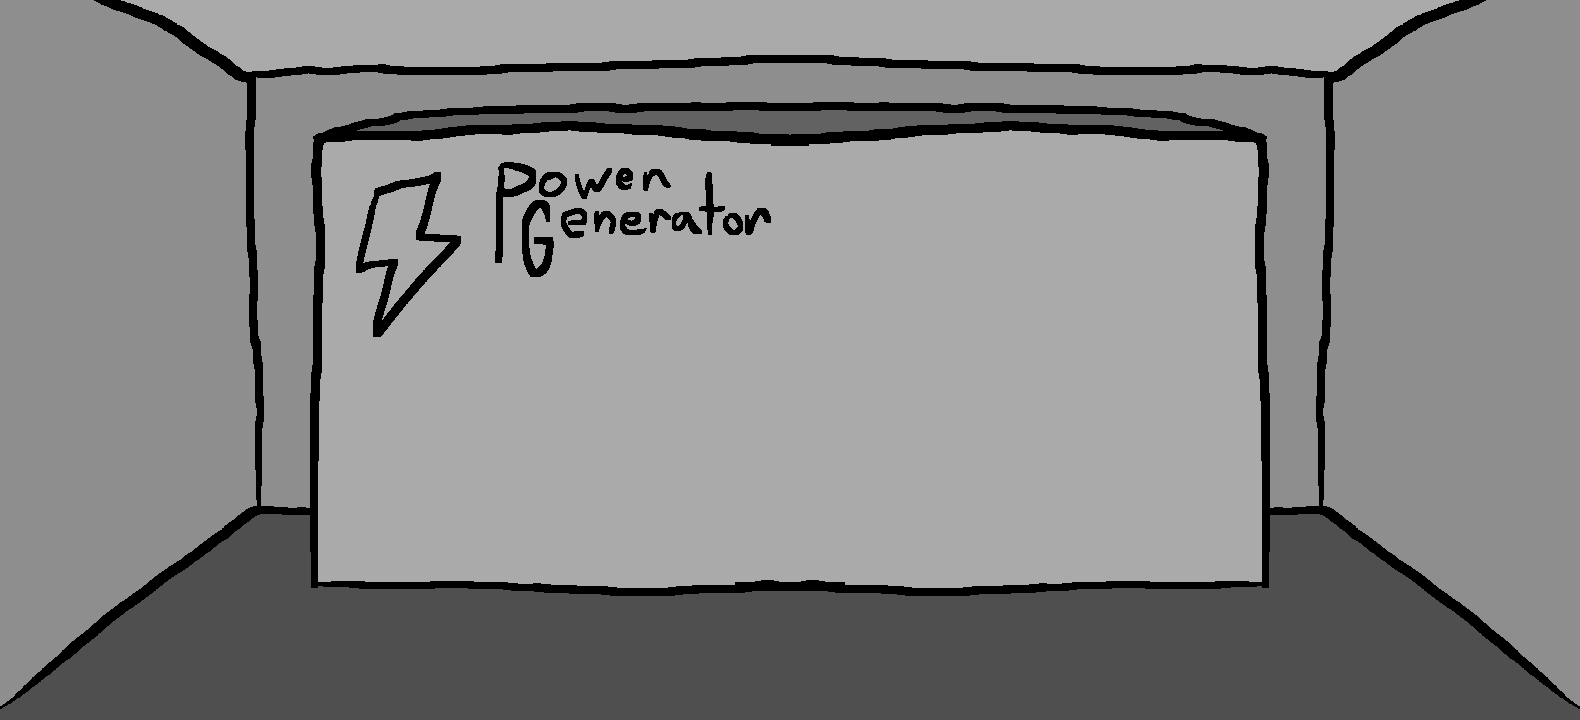 Power
Generator